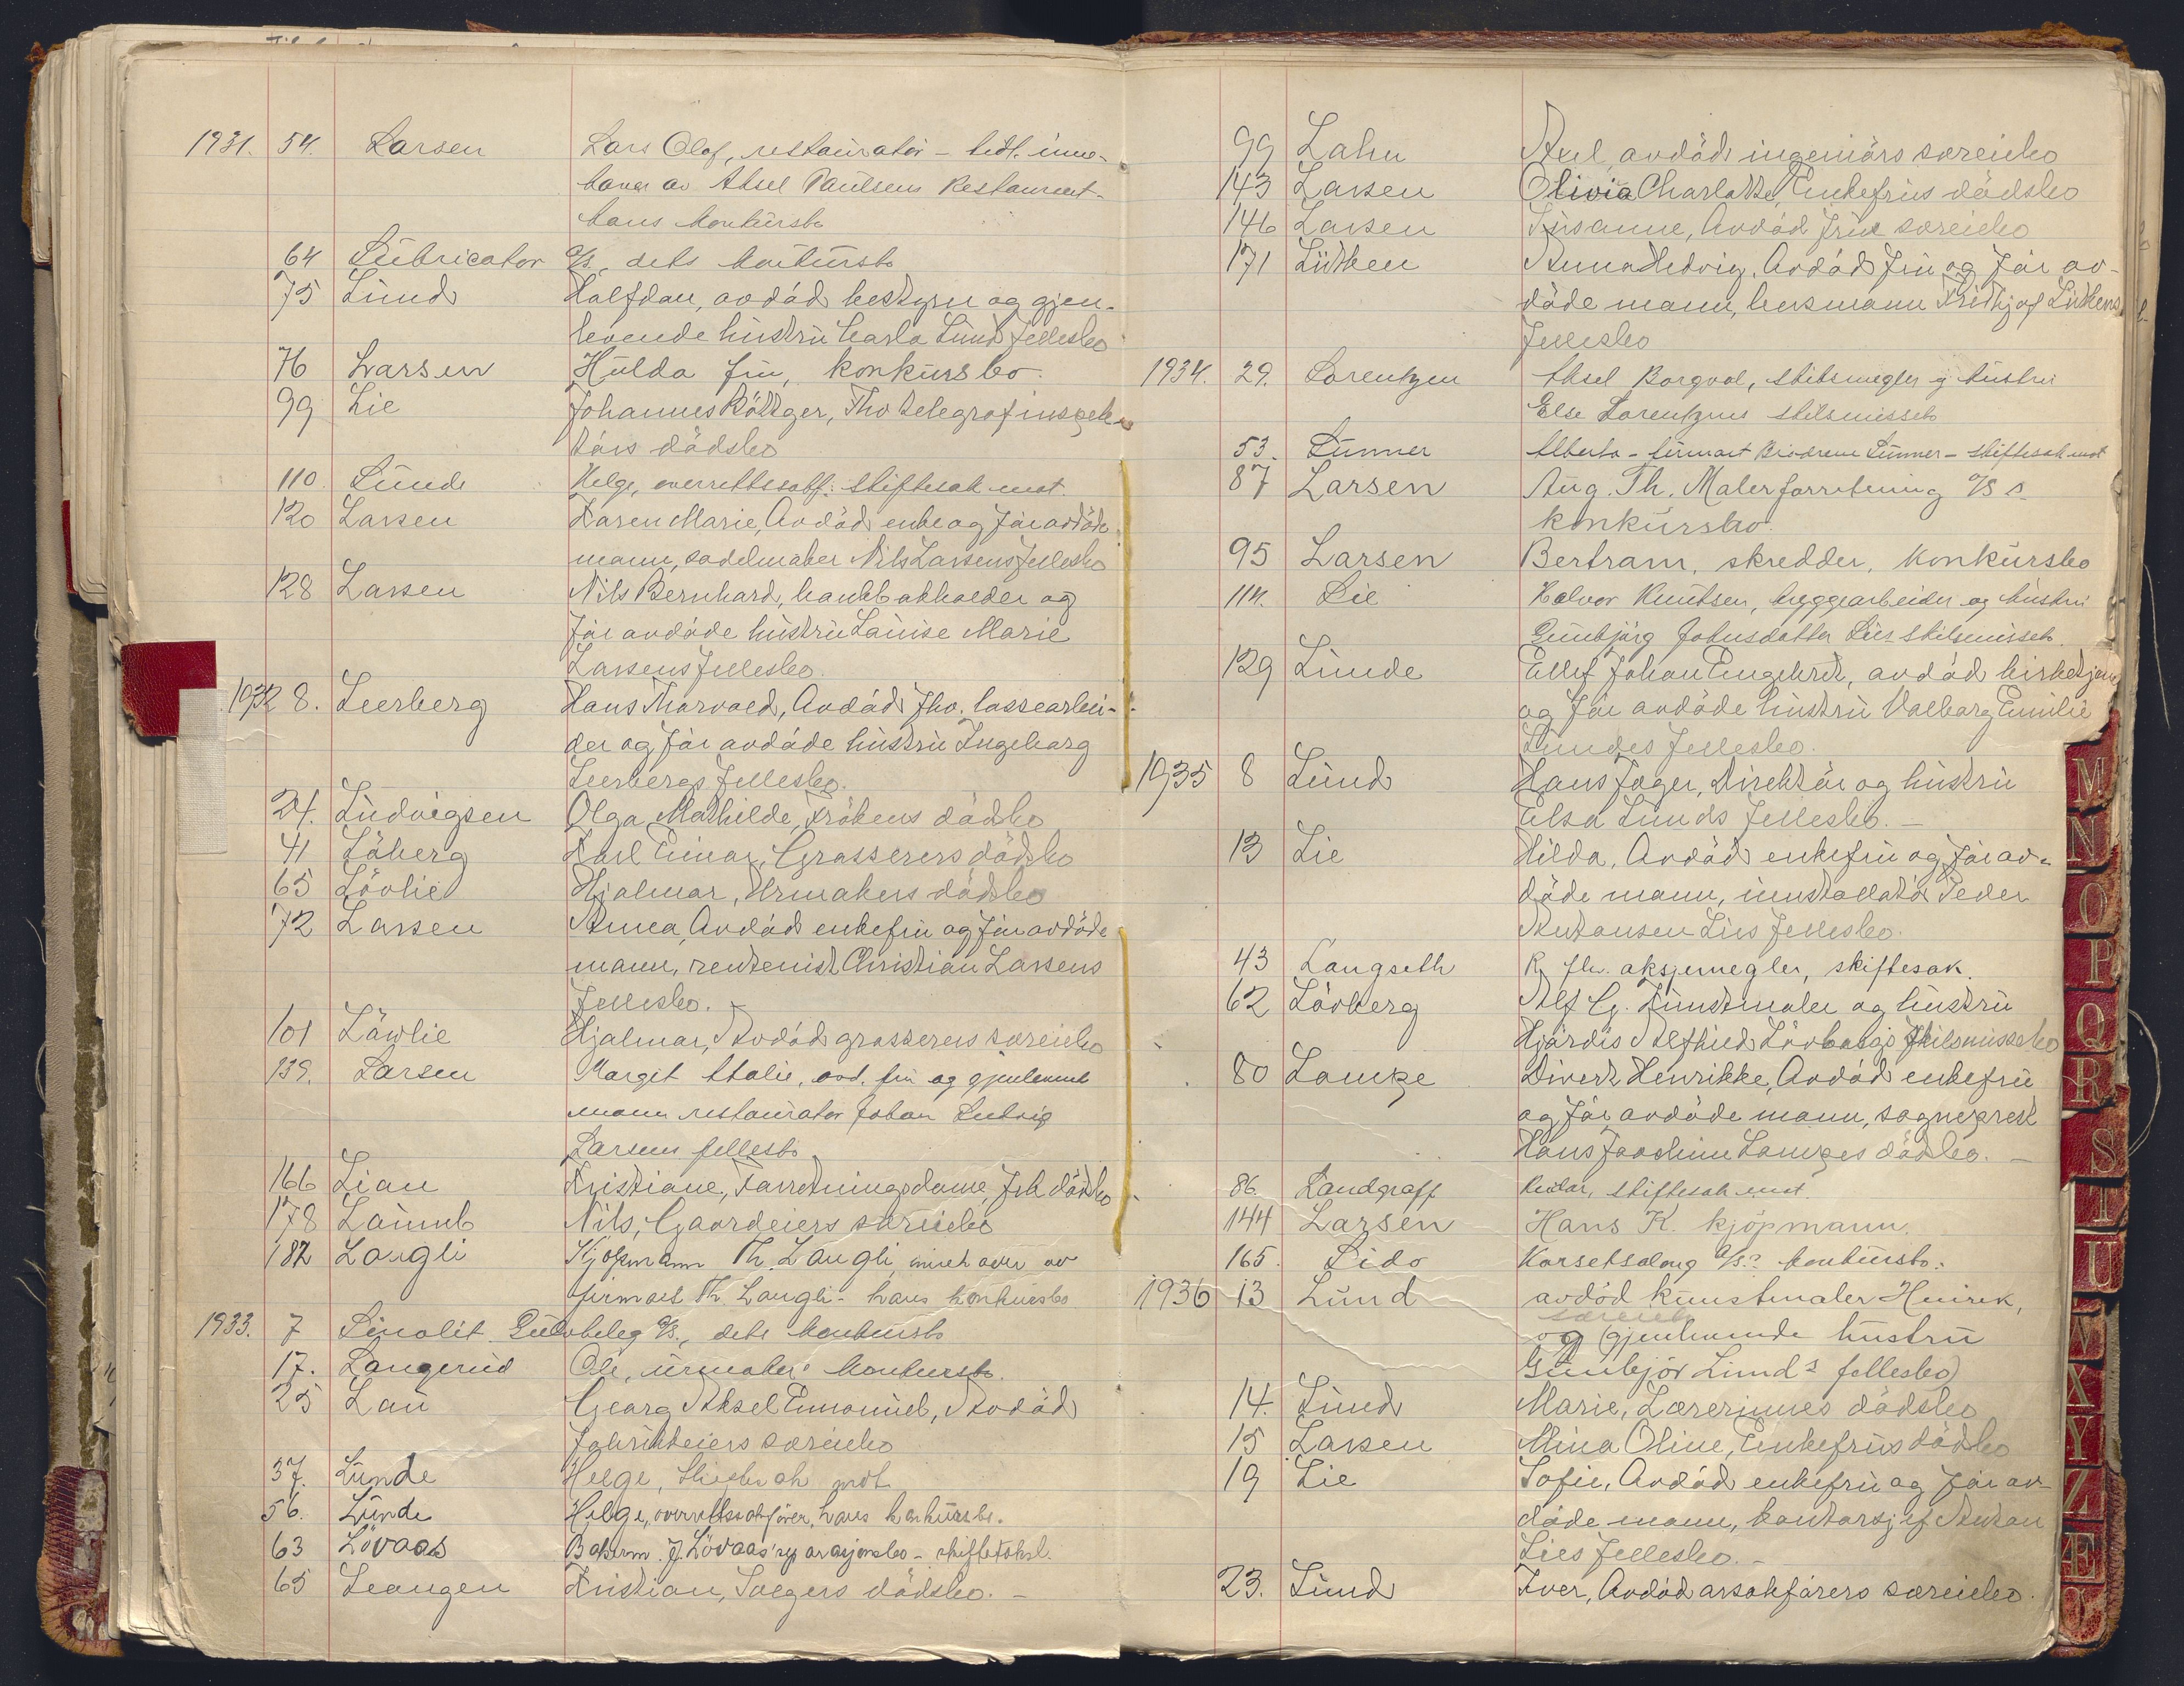 1931. 54. Larsen Lars Olof, restauratør - tidl. inne-
haver av Aksel Paulsens Restaurant.
hans konkursbo
64 Lubricator A/S., dets konkursbo
75 Lund Halfdan, avdød bestyrer og gjen-
levende hustru Carla Lund fellesbo
76 Larsen Hulda fru, konkursbo.
99 Lie Johannes Böttger, Fhv telegrafinspek-
törs dödsbo
110. Lunde Helge, overrettssakf. skiftesak mot.
120 Larsen Karen Marie, Avdöd enke og för avdöde
mann, sadelmaker Nils Larsens fellesbo
128 Larsen Nils Bernhard, bankbokholder og
för avdöde hustru Lovise Marie
Larsens fellesbo.
1932 8. Leerberg Hans Thorvald, Avdöd fhv. lossearbei-
der og för avdöde hustru Ingeborg
Leerbergs fellesbo.
24. Ludvigsen Olga Mathilde, Frökens dödsbo
41 Löberg Karl Einar, Grosserers dödsbo
65 Lövlie Hjalmar, Urmakers dödsbo
72 Larsen Anna, Avdöd enkefru og för avdöde
mann, rentenist Christian Larsens
fellesbo.
101 Löwlie Hjalmar, Avdöd grosserers særeiebo
139. Larsen Margit Atalie, avd. fru og gjenlevende
mann restauratør Johan Ludvig
Larsens fellesbo
166 Lian Kristiane, Forretningsdame, Frk dödsbo
178 Laumb Nils, Gaardeiers særeiebo
182 Langli Kjøpmann Th. Langli, inneh aver av
firmaet Th Langli - hans konkursbo
1933. 7 Linolit Gulvbeleg A/S., dets konkursbo
17. Langerud Ole, urmaker konkursbo.
25 Lau Georg Aksel Emanuel, Avdöd
fabrikkeiers særeiebo
37. Lunde Helge, skiftesak mot
56. Lunde Helge, overrettssakfører, hans konkursbo.
63 Lövaas J. Lövaas' - skifteforhl.
65 Leangen Kristian, Selgers dödsbo. -
99 Lahn Axel, avdöd ingeniörs særeiebo
143 Larsen Olivia Charlotte, Enkefrus dödsbo
146 Larsen Susanne, Avdöd frus særeiebo
171 Lütken Anna Hedvig, Avdöd fru og för av-
döde mann, lensmann Fridtjof Lütkens
fellesbo
1934. 29. Lorentzen Aksel Borgval, skibsmegler og hustru
Else Lorentzens skilsmissebo
53. Lunner Alberta - firmaet Brødrene Lunner - skiftesak mot
87 Larsen Aug. Th. Malerforretning A/S s
konkursbo.
95 Larsen Bertram, skredder, konkursbo
114. Lie Halvor Knutsen, bryggearbeider og hustru
Gunbjörg Johnsdatter Lies skilsmissebo.
129 Lunde Ellef Johan Engebret, avdöd kirketjener
og för avdöde hustru Valborg Emilie
Lundes fellesbo.
1935 8 Lund Hans Jager, Direktör og hustru
Elsa Lunds fellesbo. -
13 Lie Hilda, Avdöd enkefru og för av-
döde mann, innstallatör Peder
Antonsen Lies fellesbo.
43 Langseth R fhv. aksjemegler, skiftesak.
62 Lövberg Alf G. Kunstmaler og hustru
Hjördis Alfhild Lövbergs skilsmissebo
80 Lampe Divert Henrikke, Avdöd enkefru
og för avdöde mann, sogneprest
Hans Joachim Lampes dödsbo. -
86. Landgraff skiftesak mot.
144 Larsen Hans K. kjöpmann.
165. Lido Korsetsalong A/S? konkursbo.
1936 13 Lund avdöd kunstmaler Henrik,
særeie
og (gjenlevende hustru
Gunbjör Lund's fellesbo)
14. Lund Marie, Lærerinnes dödsbo
15 Larsen Mina Oline, Enkefrus dödsbo
19 Lie Sofie, Avdöd enkefru og för av-
döde mann, kontorsjef Anton
Lies fellesbo. -
23. Lund Iver, Avdöd orsakförers særeiebo.
M
N
O
P
Q
R
S
T
U
V
X
Y
Z
Æ